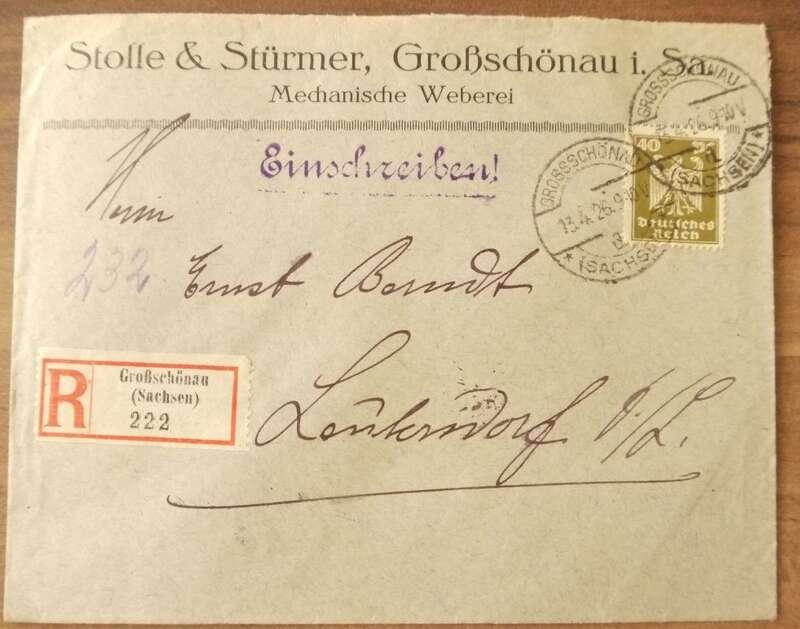 Stolle & Stürmer, Großschönau i. Sa.
Mechanische Weberei
Einschreiben!
GROSSSCHÖNAU
9-10 V.
(SACHSEN)
GROSSSCHÖNAU
13.4.26.9-10 V.
(SACHSE
40
Deutsches
Reich
Herrn
232
Ernst Berndt
R
Großschönau
(Sachsen)
222
Leutersdorf O/L.